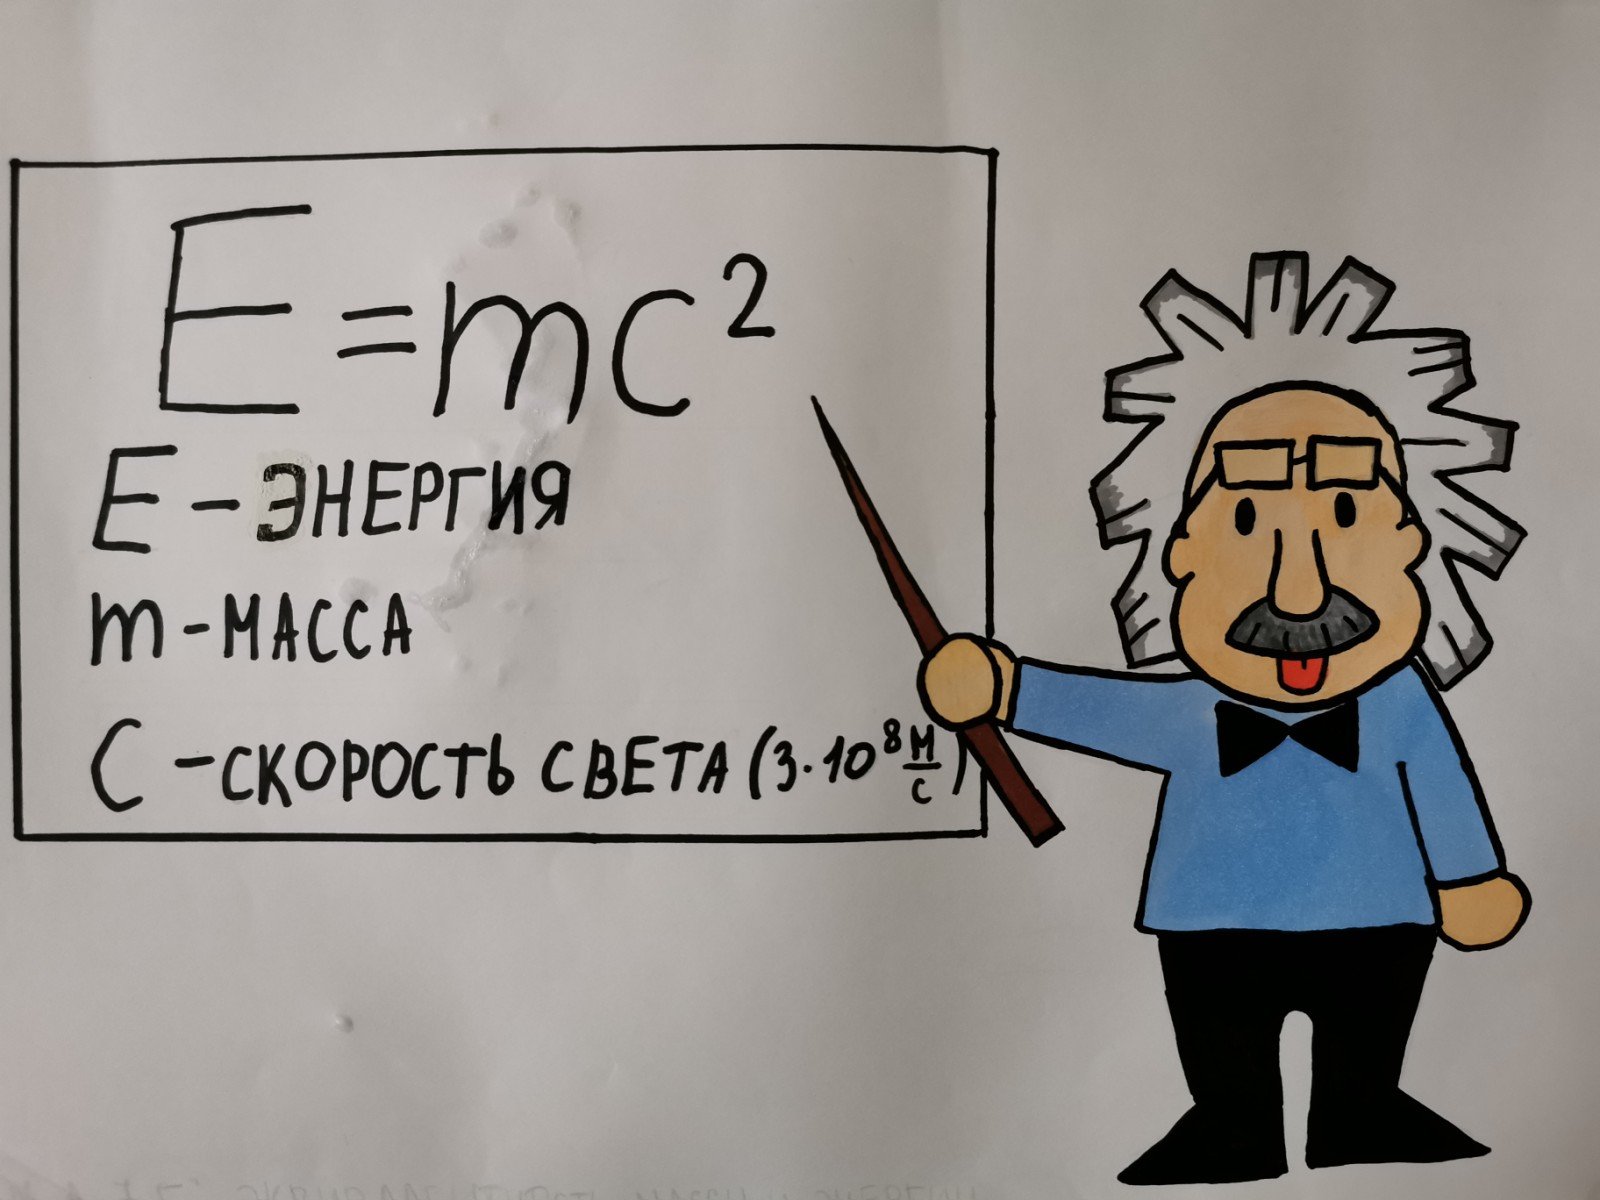 E=mc²
E - ЭНЕРГИЯ
m - МАССА
C - СКОРОСТЬ СВЕТА (3·10⁸ М/С)